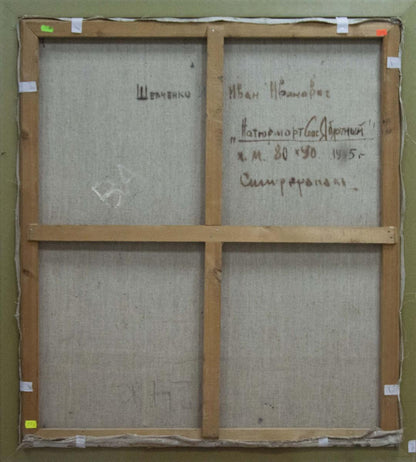 Шевченко Иван Иванович
"Натюрморт Спас Яблочный"
х. м. 80 х 90 1995 г
Симферополь